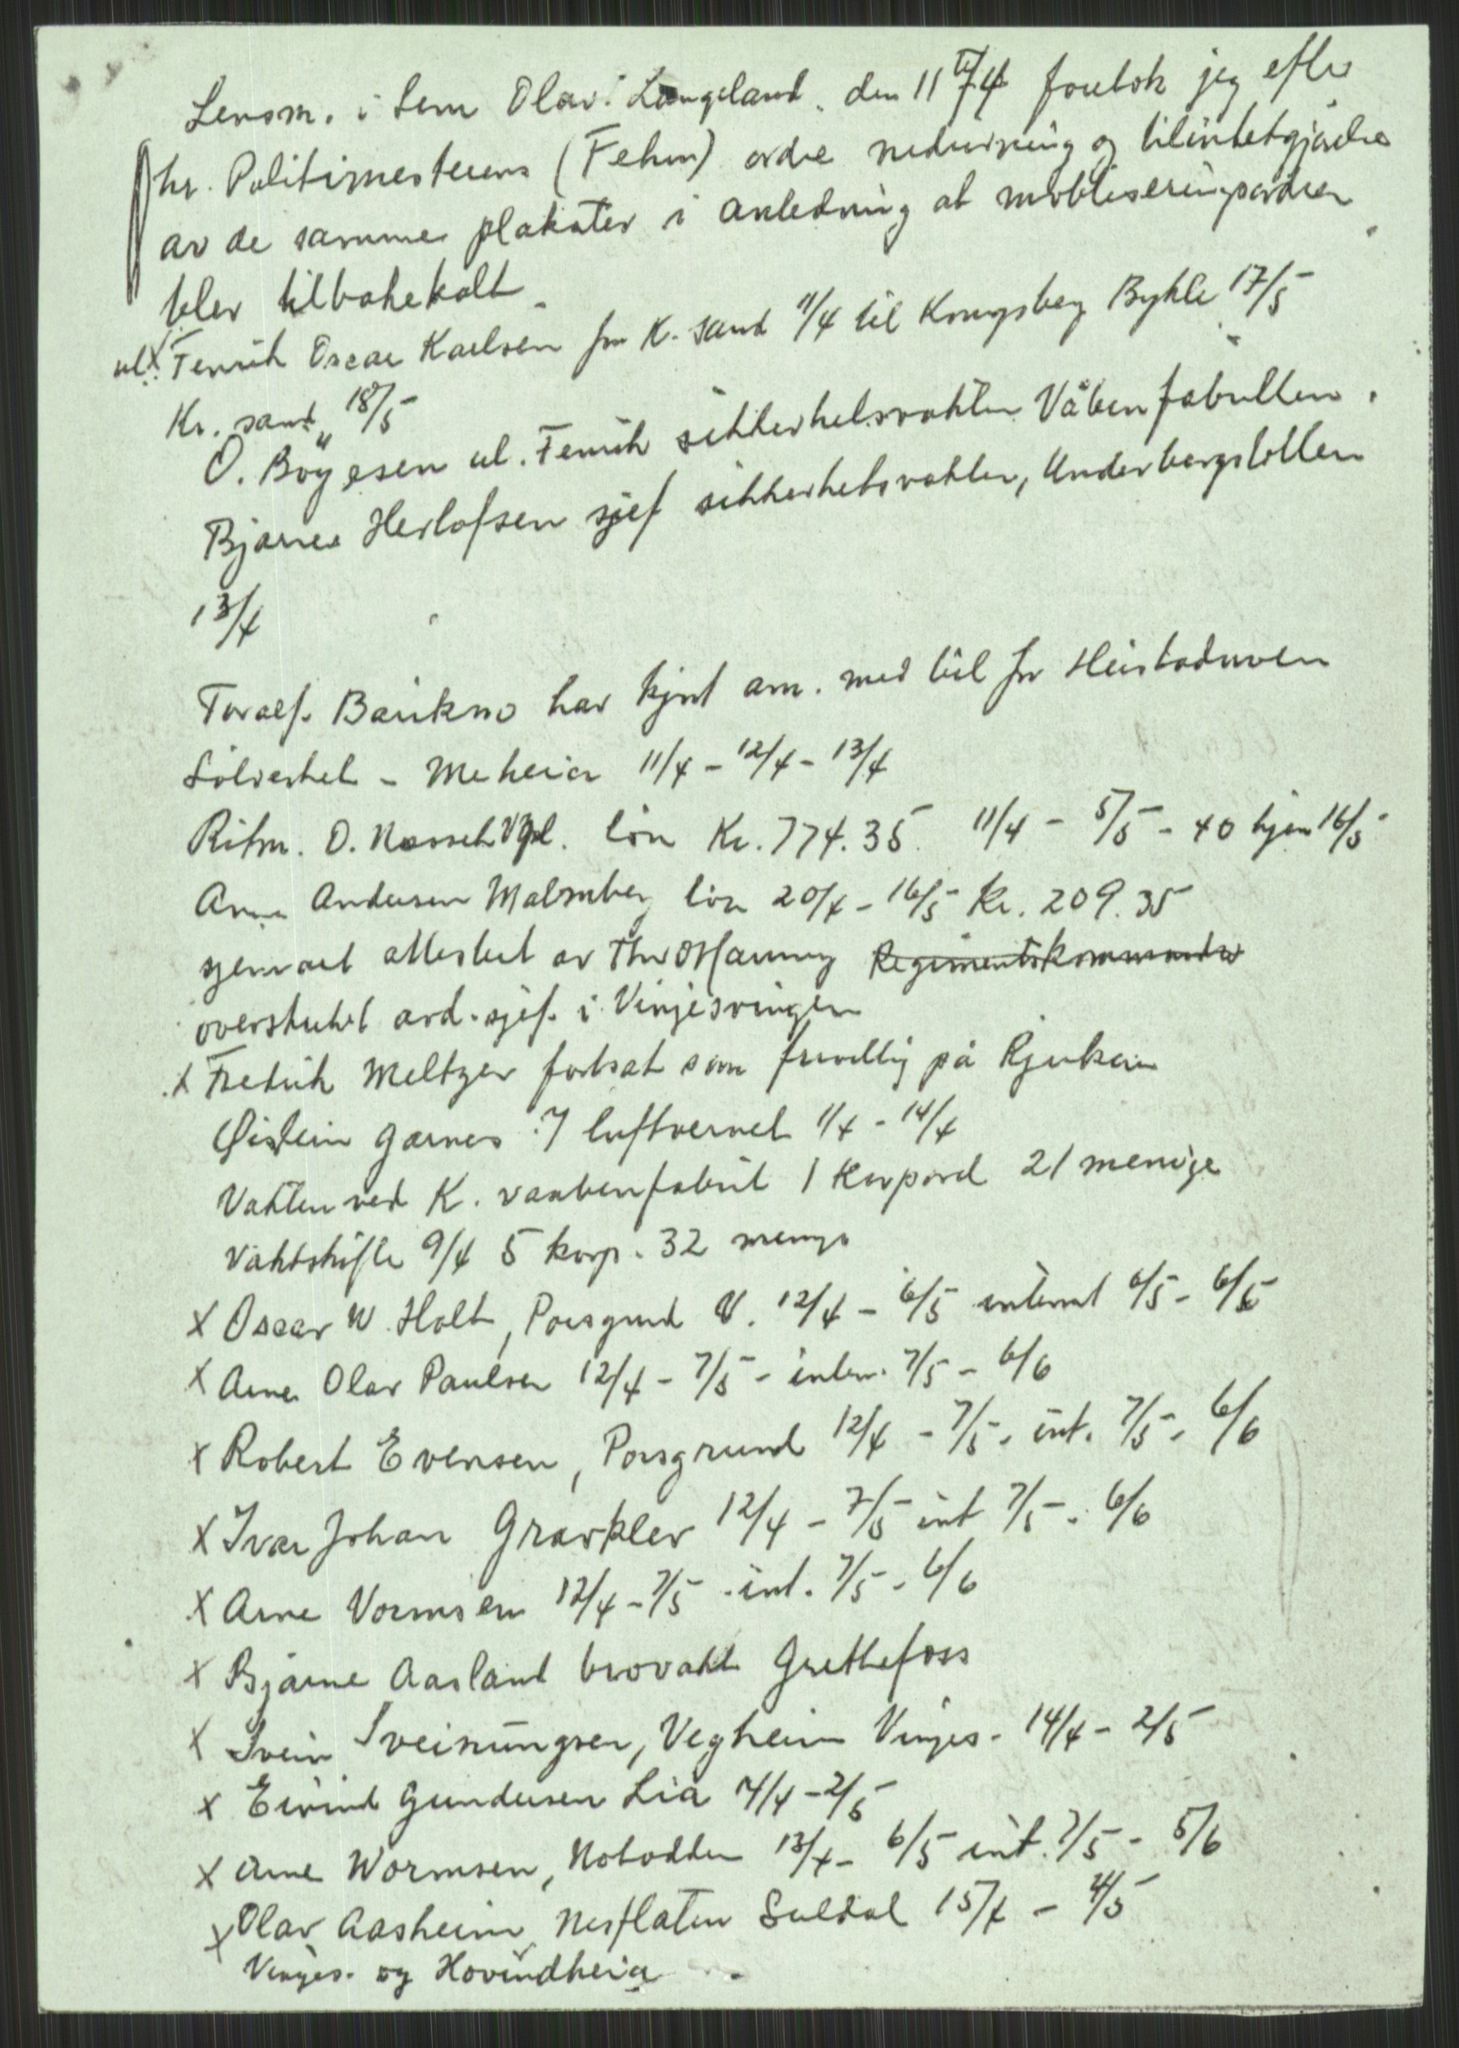 Lensm. i Sem Olav Langeland. den 11/4 foretok jeg efter
hr. Politimesterens (Fehm) ordre nedrivning og tilintetgjørelse
av de samme plakater i anledning at mobliseringsordren
blev tilbakekalt
ul. X Fenrik Oscar Karlsen fra K. sand 11/4 til Kongsberg Bykle 17/5
Kr. sand 18/5
O. Bøyesen ul. Fenrik sikkerhetsvakten Våbenfabrikken.
Bjarne Herlofsen sjef sikkerhetsvakten, Underbergstollen
13/4
Toralf. Bakkno har kjørt am. med bil fra Heistadmoen
Sølverket - Meheia 11/4 - 12/4 - 13/4
Ritm. O. Næsseth Vpl. lön Kr. 774.35 11/4 - 5/5 - 40 hjem 16/5
Arne Andersen Malmberg lön 20/4 - 16/5 Kr. 209.35
attestert av Thv Hannevig Regimentskommandør
overstreket avd. sjef. i Vinjesvingen
X Fredrik Meltzer fortsat som frivillig på Rjukan
Øistein Garnes I luftvernet 1/4 - 14/4
Vakten ved K. vaabenfabrik 1 korporal 21 menige
Vaktskifte 9/4 5 korp. 32 menige
X Oscar W. Holt, Porsgrund V. 12/4 - 6/5 internert 6/5 - 6/6
X Arne Olav Paulsen 12/4 - 7/5 - intern. 7/5 - 6/6
X Robert Evensen, Porsgrund 12/4 - 7/5. int. 7/5 - 6/6
X Ivar Johan Gravklev 12/4 - 7/5 int 7/5 - 6/6
X Arne Vormsen 12/4 - 7/5 - int. 7/5 - 6/6
X Bjarne Aasland brovakt Grettefoss
X Svein Sveinungsen, Vegheim Vinjes - 14/4 - 2/5
X Eivind Gundersen Lia 14/4 - 2/5
X Arne Wormsen, Notodden 13/4 - 6/5 int. 7/5 - 5/6
X Olav Aasheim, Nesflaten Suldal 15/4 - 4/5
Vinjes. og Hovindheia